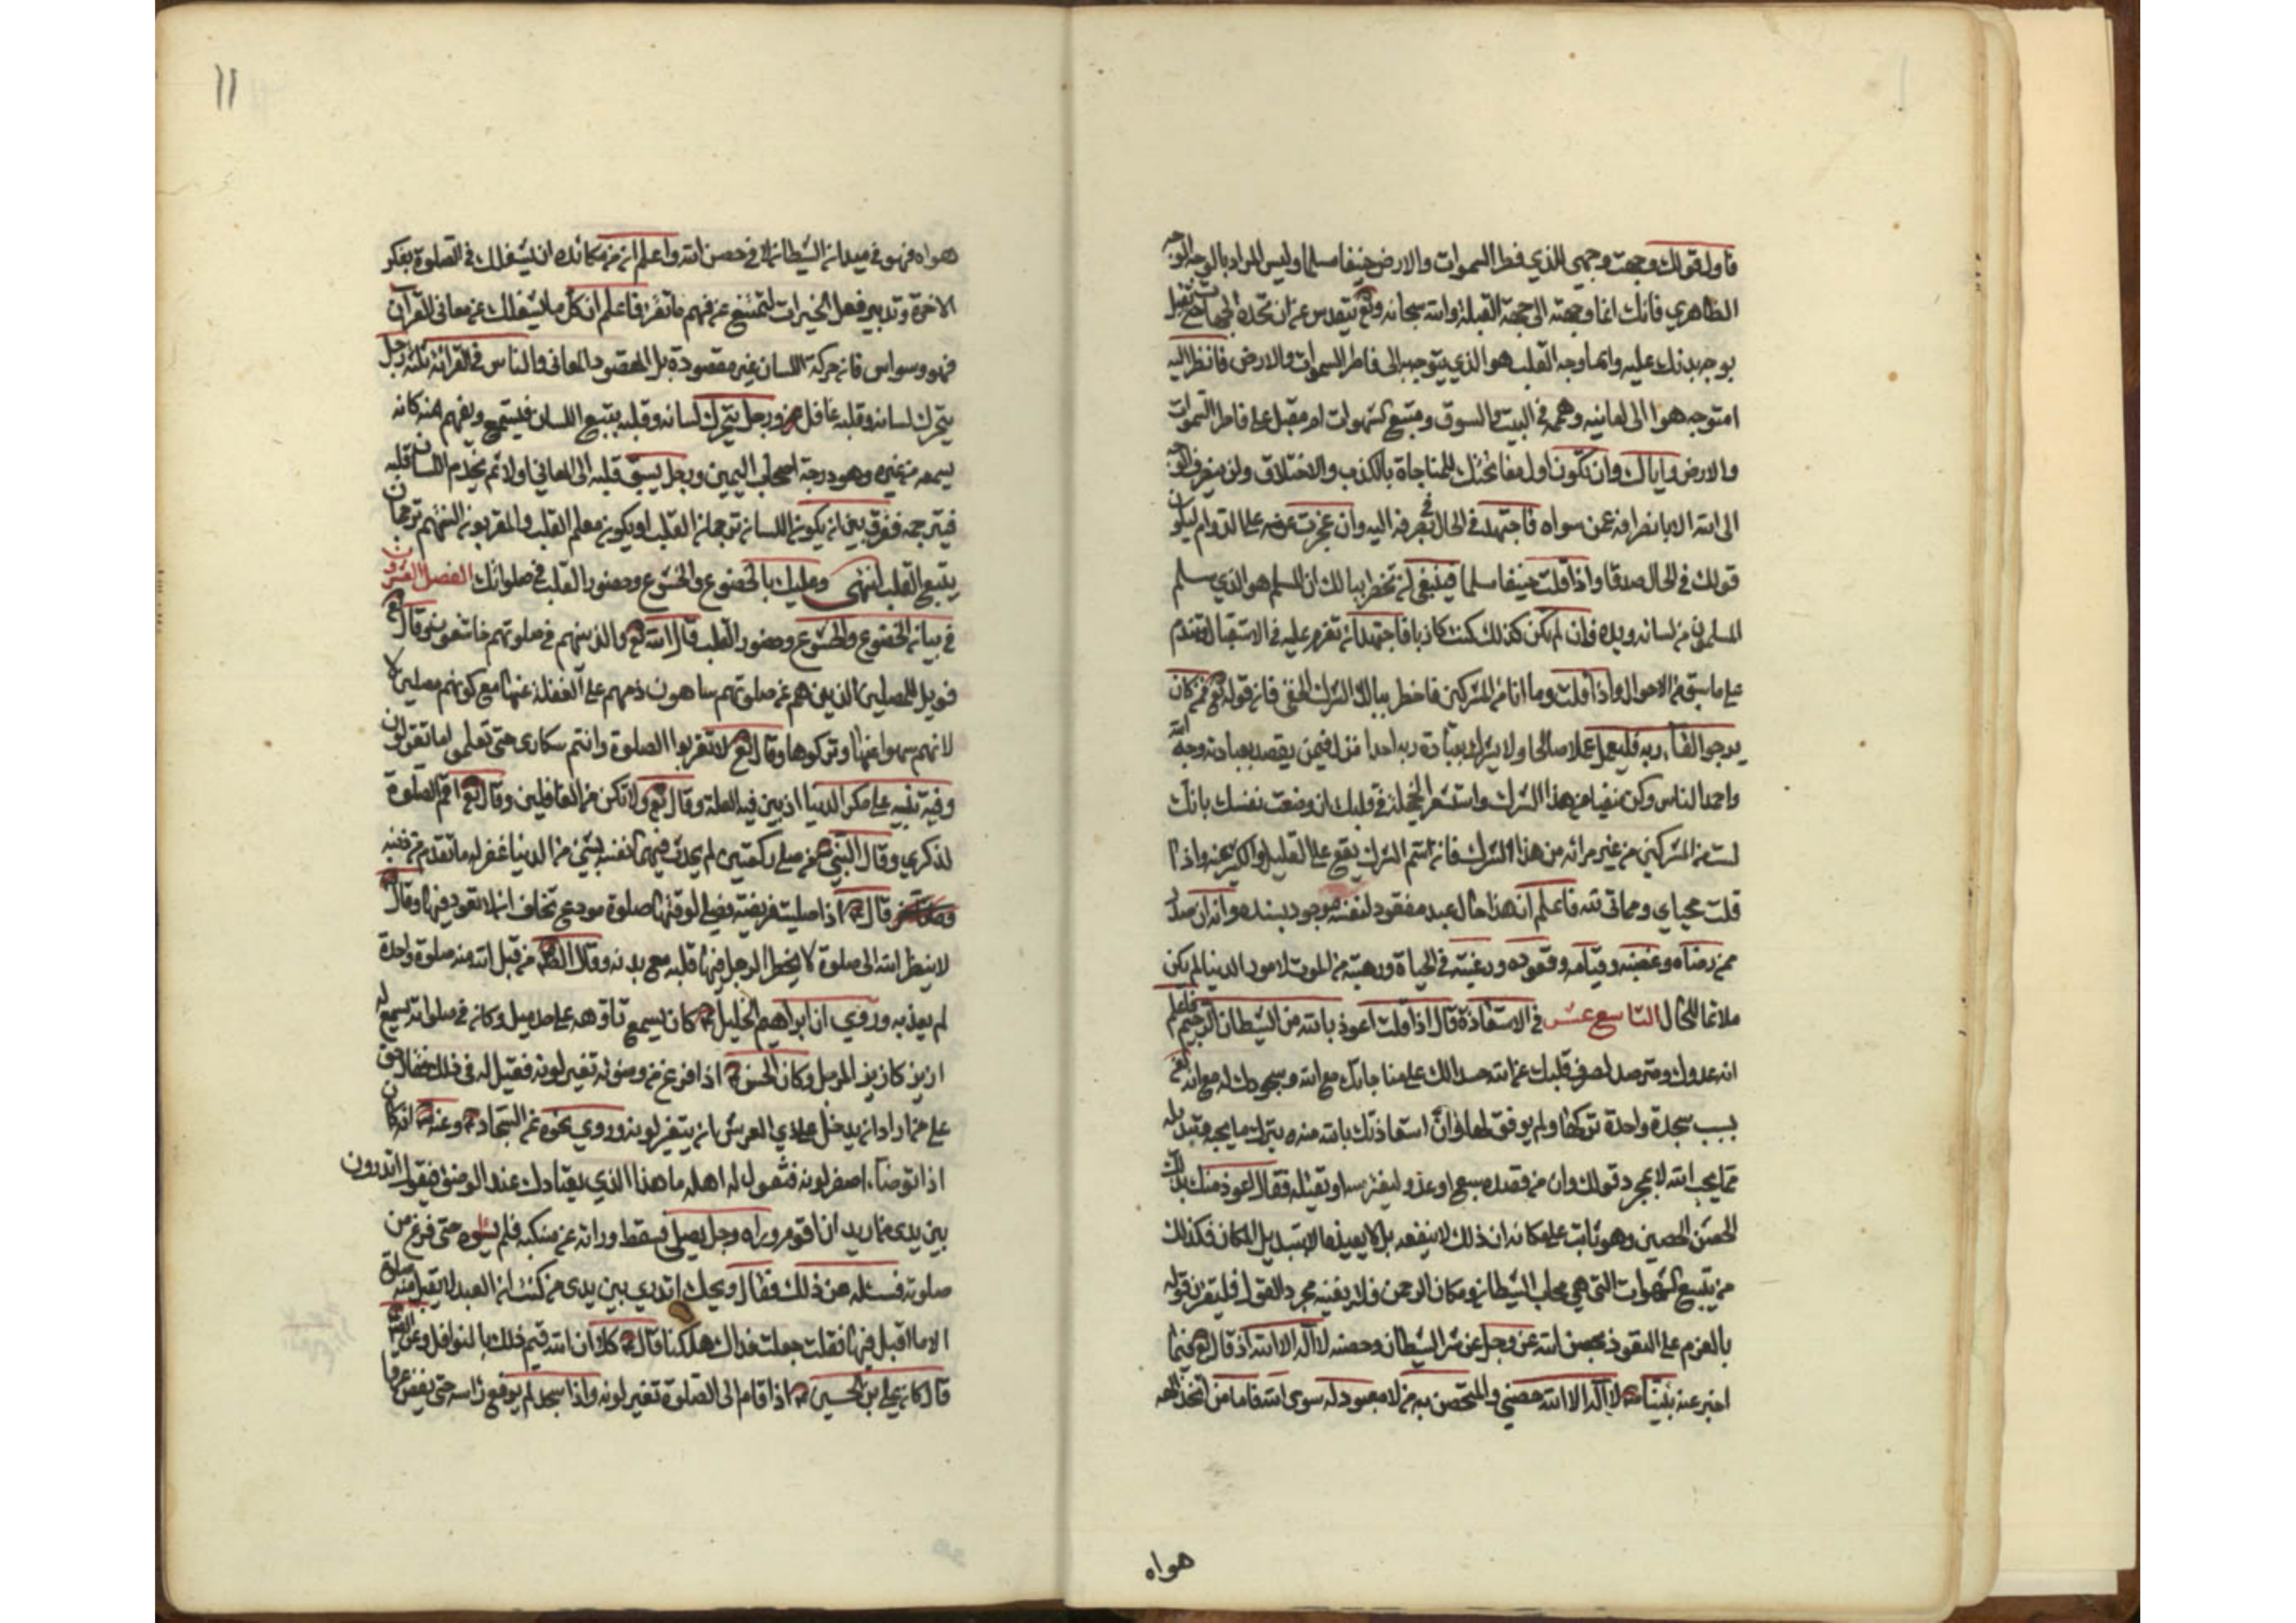 فاول قولك وجهت وجهي للذي فطر السموات والارض حنيفا مسلما وليس المراد بالوجه الوجه
الظاهري فانك انما وجهته الى جهة القبلة والله سبحانه وتع يتقدس عن ان تحده الجهات حتى تقبل
بوجه بدنك عليه وانما وجه القلب هو الذي يتوجه الى فاطر السموات والارض فانظر اليه
امتوجه هو الى امانيه وهمه في البيت والسوق ومتبع للشهوات ام مقبل على فاطر السموات
والارض واياك وان تكون اول مفاتحتك للمناجاة بالكذب والاختلاق ولن ينصرف الوجه
الى الله الا بانصرافه عمن سواه فاجتهد في الحال في صرفه اليه وان عجزت عنه على الدوام ليكون
قولك في الحال صدقا واذا قلت حنيفا مسلما فينبغي ان تخطر ببالك ان المسلم هو الذي سلم
المسلمون من لسانه ويده فان لم يكن كذلك كنت كاذبا فاجتهد ان تعزم عليه في الاستقبال وتندم
على ما سبق من الاحوال واذا قلت وما انا من المشركين فاخطر ببالك الشرك الخفي فان قوله تع فمن كان
يرجو القاء ربه فليعمل عملا صالحا ولا يشرك بعبادة ربه احدا نزل فيمن يقصد بعبادته وجه الله
واحمد الناس وكن منفيا من هذا الشرك واستشعر الخجلة في قلبك ان وضعت نفسك بانك
لست من المشركين من غير مرائه من هذا الشرك فان اسم الشرك يقع على القليل والكثير منه واذا
قلت محياي ومماتي لله فاعلم ان هذا حال عبد مفقود لنفسه موجود بسنده وانه ان صدر
ممن رضاه وغضبه وقيامه وقعوده ورغبته في الحياة ورهبته من الموت لامور الدنيا لم يكن
ملائما للحال التاسع عشر في الاستعاذة قال اذا قلت اعوذ بالله من الشيطان الرجيم فاعلم
انه عدوك ومترصد لصرف قلبك عن الله حسدا لك على مناجاتك مع الله وسجودك له مع انه لعن
بسبب سجدة واحدة تركها ولم يوفق لها وان استعاذتك بالله منه بترك ما يحبه وتبديله
مما يحب الله لا بمجرد قولك وان من قصده سبع او عدو ليفترسه او تقتله فقال اعوذ منك بذلك
الحصن الحصين وهو ثابت على مكانه ان ذلك لا ينفعه بل لا يعيذه الا تبديل المكان فكذلك
من يتبع الشهوات التي هي محاب الشيطان ومكاره الرحمن فلا يغنيه مجرد القول فليقرن قوله
بالعزم على التعوذ بحصن الله عز وجل عن شر الشيطان وحصنه لا اله الا الله اذ قال تع فيما
اخبر عنه نبينا ص لا اله الا الله حصني والمتحصن به من لا معبود له سوى الله فاما من اتخذ الهه
هواه
١١
هواه فهو في ميدان الشيطان لا في حصن الله واعلم ان من مكائده ان يشغلك في الصلوة بفكر
الاخرة وتدبير فعل الخيرات لتمتنع عن فهم ما تقرء فاعلم ان كل ما يشغلك عن معاني القرآن
فهو وسواس فان حركة اللسان غير مقصودة بل المقصود المعاني والناس في القرائة ثلثة رجل
يتحرك لسانه وقلبه غافل ورجل يتحرك لسانه وقلبه يتبع اللسان فيستمع ويفهم منه كانه
يسمعه من غيره وهو درجة اصحاب اليمين ورجل يسبق قلبه الى المعاني اولا ثم يخدم اللسان قلبه
فيترجمه ففرق بين ان يكون اللسان ترجمان القلب او يكون معلم القلب والمقربون السنتهم ترجمان
يتبع القلب انتهى وعليك بالخضوع والخشوع وحضور القلب في صلواتك الفصل العشرون
في بيان الخضوع والخشوع وحضور القلب قال الله تع والذينهم في صلوتهم خاشعون وقال تع
فويل للمصلين الذين هم عن صلوتهم ساهون ذمهم على الغفلة عنها مع كونهم مصلين لا
لانهم سهوا عنها وتركوها وقال تع لا تقربوا الصلوة وانتم سكارى حتى تعلموا ما تقولون
وفيه تنبيه على سكر الدنيا اذ بين فيه العلة وقال تع ولا تكن من الغافلين وقال تع اقم الصلوة
لذكري وقال النبي ص من صلى ركعتين لم يحدث فيهما نفسه بشيء من الدنيا غفر له ما تقدم من ذنبه
وقال ص اذا صليت فريضة فصل لوقتها صلوة مودع تخاف ان لا تعود فيها وقال ص
لا ينظر الله الى صلوة لا يحضر الرجل فيها قلبه مع بدنه وقال الصم من قبل الله منه صلوة واحدة
لم يعذبه وروي ان ابراهيم الخليل ع كان يسمع تاوهه على حد ميل وكان في صلواته يسمع له
ازيز كازيز المرجل وكان الحسن ع اذا فرغ من وضوئه تغير لونه فقيل له في ذلك فقال حق
على من اراد ان يدخل على ذي العرش ان يتغير لونه وروي نحوه عن السجاد ع وعنه ع انه كان
اذا توضأ اصفر لونه فتقول له اهله ما هذا الذي يعتادك عند الوضوء فيقول اتدرون
بين يدي من اريد ان اقوم وراه رجل يصلي فسقط ردائه عن منكبه فلم يسوه حتى فرغ من
صلوته فسئله عن ذلك فقال ويحك اتدري بين يدي من كنت ان العبد لا يقبل منه صلوة
الا ما اقبل فيها فقلت جعلت فداك هلكنا قال ع كلا ان الله قيم ذلك بالنوافل وعن الصم
قال كان علي بن الحسين ع اذا قام الى الصلوة تغير لونه واذا سجد لم يرفع راسه حتى يفض عرقا